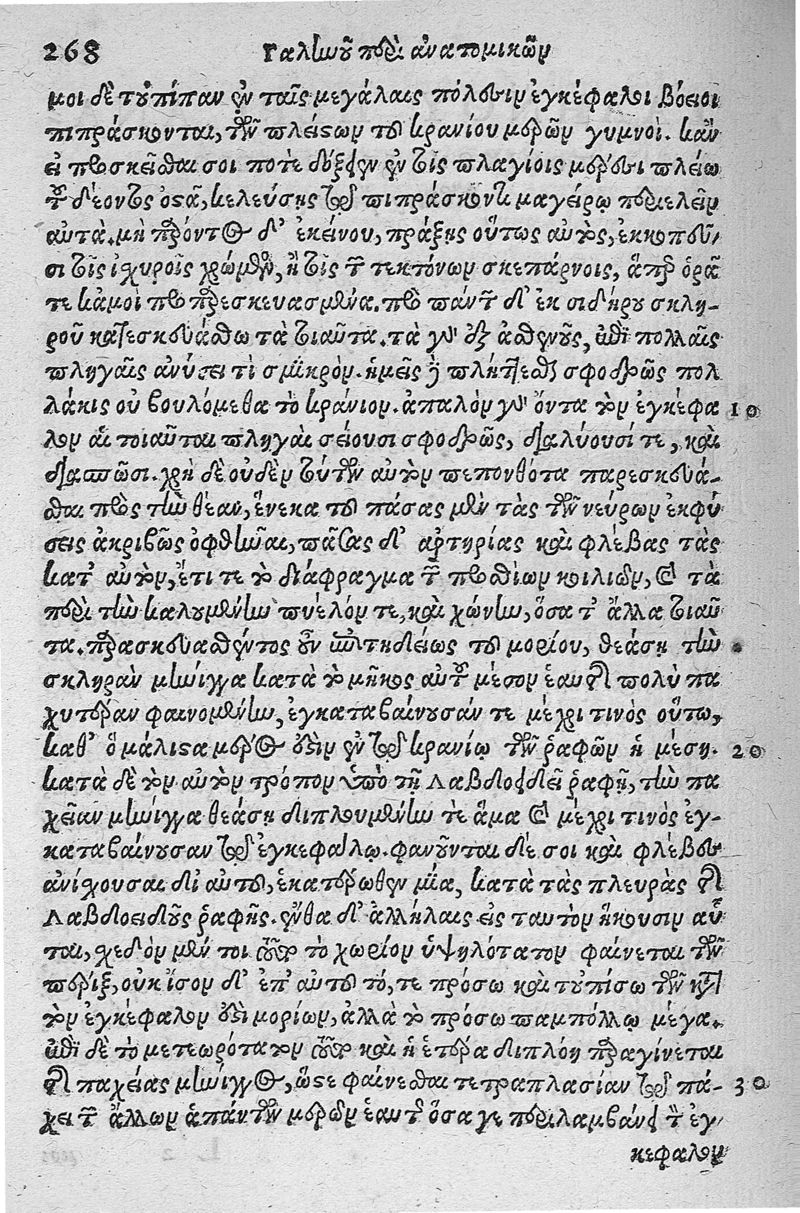 268 Γαληνοῦ περὶ ἀνατομικῶν
μοι δὲ τὐπίπαν ἐν ταῖς μεγάλαις πόλεσιν ἐγκέφαλοι βόειοι
πιπράσκονται, τῶν πλείστων τοῦ κρανίου μερῶν γυμνοί. κἂν
εἰ προσκεῖσθαι σοι ποτὲ δόξειεν ἐν τοῖς πλαγίοις μέρεσι πλείω
τοῦ δέοντος ὀστᾶ, κελεύσῃς τῷ πιπράσκοντι μαγείρῳ περιελεῖν
αὐτά. μὴ παρόντος δ' ἐκείνου, πράξῃς οὕτως αὐτός, ἐκκοπεῦ-
σι τοῖς ἰσχυροῖς χρώμενος, ἢ τοῖς τῶν τεκτόνων σκεπάρνοις, ἅπερ ὁρᾶ
τε κἀμοὶ προπαρεσκευασμένα. πρὸ πάντων δ' ἐκ σιδήρου σκλη-
ροῦ κατεσκευάσθω τὰ τοιαῦτα. τὰ γὰρ ἐξ ἀσθενοῦς, ἐπὶ πολλαῖς
πληγαῖς ἀνύσει τὶ σμικρὸν. ἡμεῖς δὲ πλήττεσθαι σφοδρῶς πολ
λάκις οὐ βουλόμεθα τὸ κράνιον. ἁπαλὸν γὰρ ὄντα τὸν ἐγκέφα 10
λον αἱ τοιαῦται πληγαὶ σείουσι σφοδρῶς, διαλύουσί τε, καὶ
διασπῶσι. χρὴ δὲ οὐδὲν τούτων αὐτὸν πεπονθότα παρεσκευά-
σθαι πρὸς τὴν θέαν, ἕνεκα τοῦ πάσας μὲν τὰς τῶν νεύρων ἐκφύ
σεις ἀκριβῶς ὀφθῆναι, πάσας δ' ἀρτηρίας καὶ φλέβας τὰς
κατ' αὐτὸν, ἔτι τε τὸ διάφραγμα τῶν προσθίων κοιλιῶν, καὶ τὰ
περὶ τὴν καλουμένην πύελόν τε, καὶ χώνην, ὅσα τ' ἄλλα τοιαῦ
τα. παρασκευασθέντος οὖν ἐπιτηδείως τοῦ μορίου, θεάσῃ τὴν
σκληρὰν μήνιγγα κατὰ τὸ μῆκος αὐτοῦ μέσον ἑαυτῆς πολὺ πα
χυτέραν φαινομένην, ἐγκαταβαίνουσάν τε μέχρι τινὸς οὕτω,
καθ' ὃ μάλιστα μέρος ἐστὶν ἐν τῷ κρανίῳ τῶν ῥαφῶν ἡ μέση. 20
κατὰ δὲ τὸν αὐτὸν τρόπον ὑπὸ τῇ Λαβδοειδεῖ ῥαφῇ, τὴν πα
χεῖαν μήνιγγα θεάσῃ διπλουμένην τὲ ἅμα καὶ μέχρι τινὸς ἐγ-
καταβαίνουσαν τῷ ἐγκεφάλῳ. φανοῦνται δέ σοι καὶ φλέβες
ἀνίσχουσαι δι' αὐτοῦ, ἑκατέρωθεν μία, κατὰ τὰς πλευρὰς τῆς
Λαβδοειδοῦς ῥαφῆς. ἔνθα δ' ἀλλήλαις εἰς ταυτὸν ἥκουσιν αὗ
ται, σχεδὸν μέν τοι τοῦτο τὸ χωρίον ὑψηλότατον φαίνεται τῶν
πέριξ, οὐκ ἴσον δ' ἐπ' αὐτοῦ τό, τε πρόσω καὶ τὐπίσω τῶν κατὰ
τὸν ἐγκέφαλον ἐστὶ μορίων, ἀλλὰ τὸ πρόσω παμπόλλῳ μέγα.
ἐπὶ δὲ τὸ μετεωρότατον τοῦτο καὶ ἡ ἑτέρα διπλόη παραγίνεται
τῆς παχείας μήνιγγος, ὥστε φαίνεσθαι τετραπλασίαν τῷ πά- 30
χει τῶν ἄλλων ἁπάντων μερῶν ἑαυτῆς ὅσα γε περιλαμβάνει τὸν ἐγ
κεφαλον